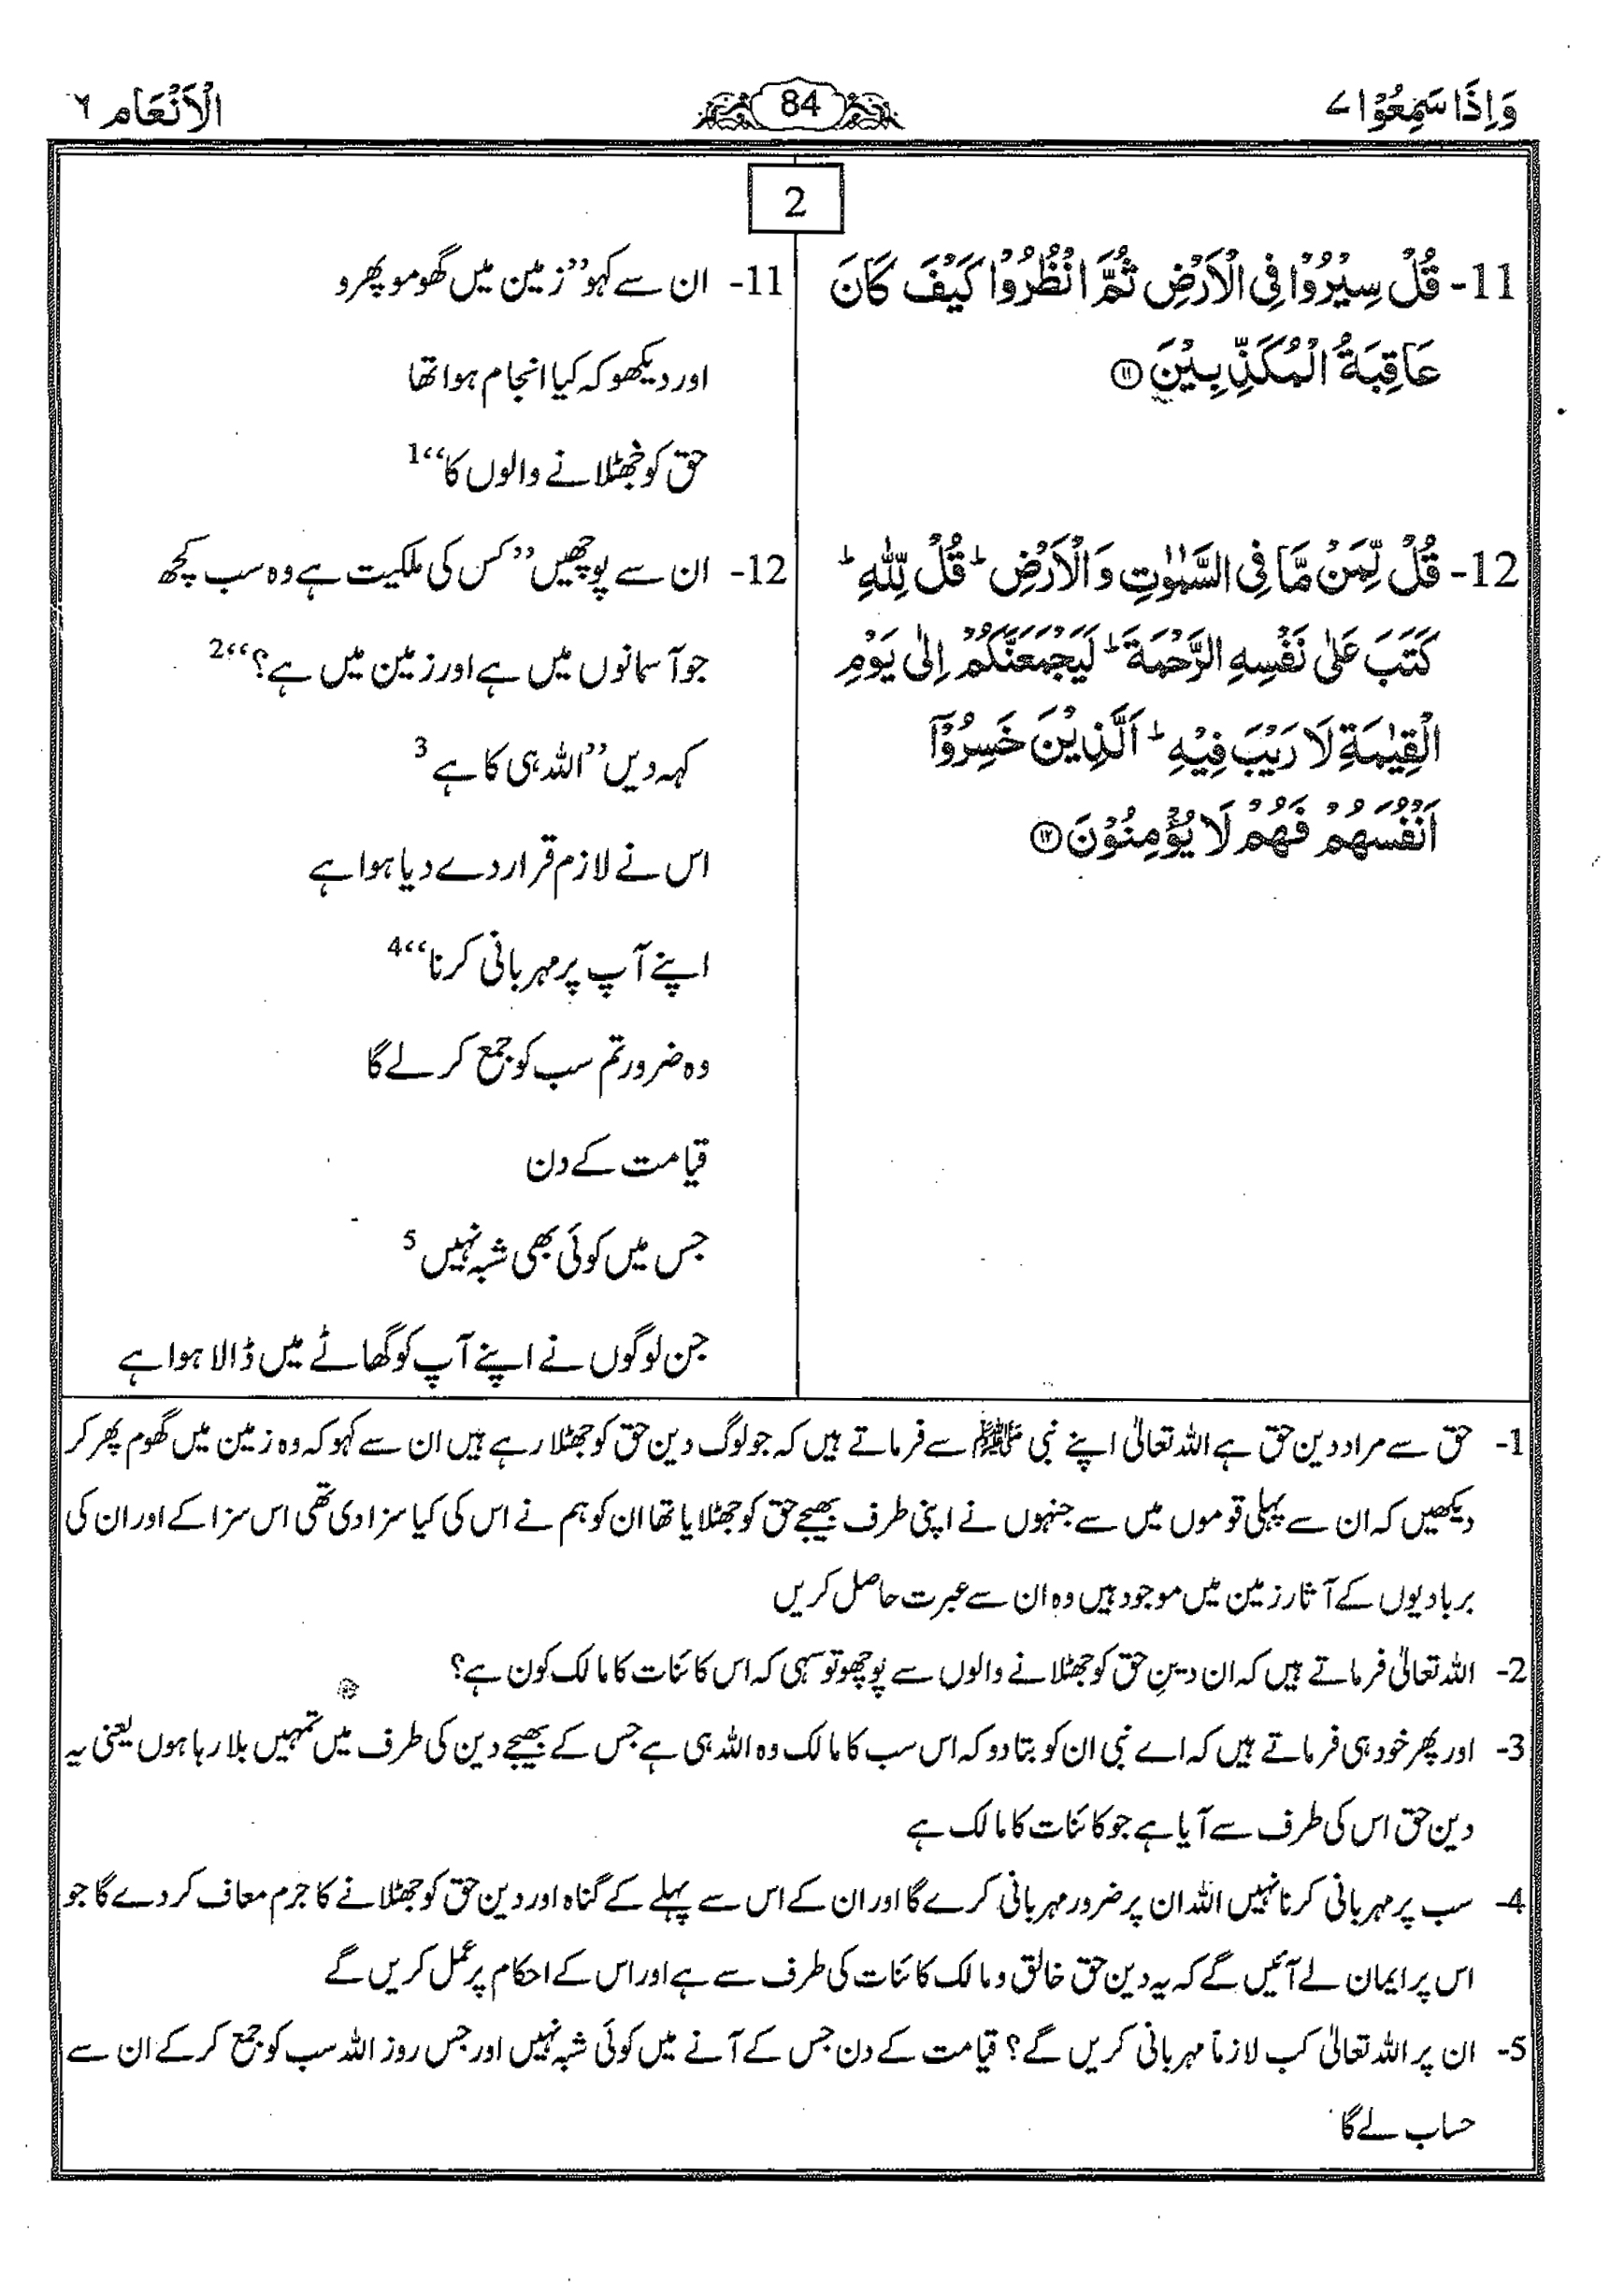 وَاِذَا سَمِعُوۡا ٧
84
الۡاَنۡعَام ٦
2
11- قُلۡ سِيۡرُوۡا فِى الۡاَرۡضِ ثُمَّ انْظُرُوۡا كَيۡفَ كَانَ
عَاقِبَةُ الۡمُكَذِّبِيۡنَ ۝۱۱
12- قُلۡ لِّمَنۡ مَّا فِى السَّمٰوٰتِ وَالۡاَرۡضِ ؕ قُلۡ لِّلّٰهِ ؕ
كَتَبَ عَلٰى نَفۡسِهِ الرَّحۡمَةَ ؕ لَيَجۡمَعَنَّكُمۡ اِلٰى يَوۡمِ
الۡقِيٰمَةِ لَا رَيۡبَ فِيۡهِ ؕ اَلَّذِيۡنَ خَسِرُوۡۤا
اَنۡفُسَهُمۡ فَهُمۡ لَا يُؤۡمِنُوۡنَ ۝۱۲
11- ان سے کہو ’’زمین میں گھومو پھرو
اور دیکھو کہ کیا انجام ہوا تھا
حق کو جھٹلانے والوں کا‘‘ 1
12- ان سے پوچھیں ’’کس کی ملکیت ہے وہ سب کچھ
جو آسمانوں میں ہے اور زمین میں ہے؟‘‘ 2
کہہ دیں ’’اللہ ہی کا ہے 3
اس نے لازم قرار دے دیا ہوا ہے
اپنے آپ پر مہربانی کرنا‘‘ 4
وہ ضرور تم سب کو جمع کر لے گا
قیامت کے دن
جس میں کوئی بھی شبہ نہیں 5
جن لوگوں نے اپنے آپ کو گھاٹے میں ڈالا ہوا ہے
1- حق سے مراد دین حق ہے اللہ تعالیٰ اپنے نبی ﷺ سے فرماتے ہیں کہ جو لوگ دین حق کو جھٹلا رہے ہیں ان سے کہو کہ وہ زمین میں گھوم پھر کر
دیکھیں کہ ان سے پہلی قوموں میں سے جنہوں نے اپنی طرف بھیجے حق کو جھٹلایا تھا ان کو ہم نے اس کی کیا سزا دی تھی اس سزا کے اور ان کی
بربادیوں کے آثار زمین میں موجود ہیں وہ ان سے عبرت حاصل کریں
2- اللہ تعالیٰ فرماتے ہیں کہ ان دینِ حق کو جھٹلانے والوں سے پوچھو تو سہی کہ اس کائنات کا مالک کون ہے؟
3- اور پھر خود ہی فرماتے ہیں کہ اے نبی ان کو بتا دو کہ اس سب کا مالک وہ اللہ ہی ہے جس کے بھیجے دین کی طرف میں تمہیں بلا رہا ہوں یعنی یہ
دین حق اس کی طرف سے آیا ہے جو کائنات کا مالک ہے
4- سب پر مہربانی کرنا نہیں اللہ ان پر ضرور مہربانی کرے گا اور ان کے اس سے پہلے کے گناہ اور دین حق کو جھٹلانے کا جرم معاف کر دے گا جو
اس پر ایمان لے آئیں گے کہ یہ دین حق خالق و مالک کائنات کی طرف سے ہے اور اس کے احکام پر عمل کریں گے
5- ان پر اللہ تعالیٰ کب لازماً مہربانی کریں گے؟ قیامت کے دن جس کے آنے میں کوئی شبہ نہیں اور جس روز اللہ سب کو جمع کر کے ان سے
حساب لے گا